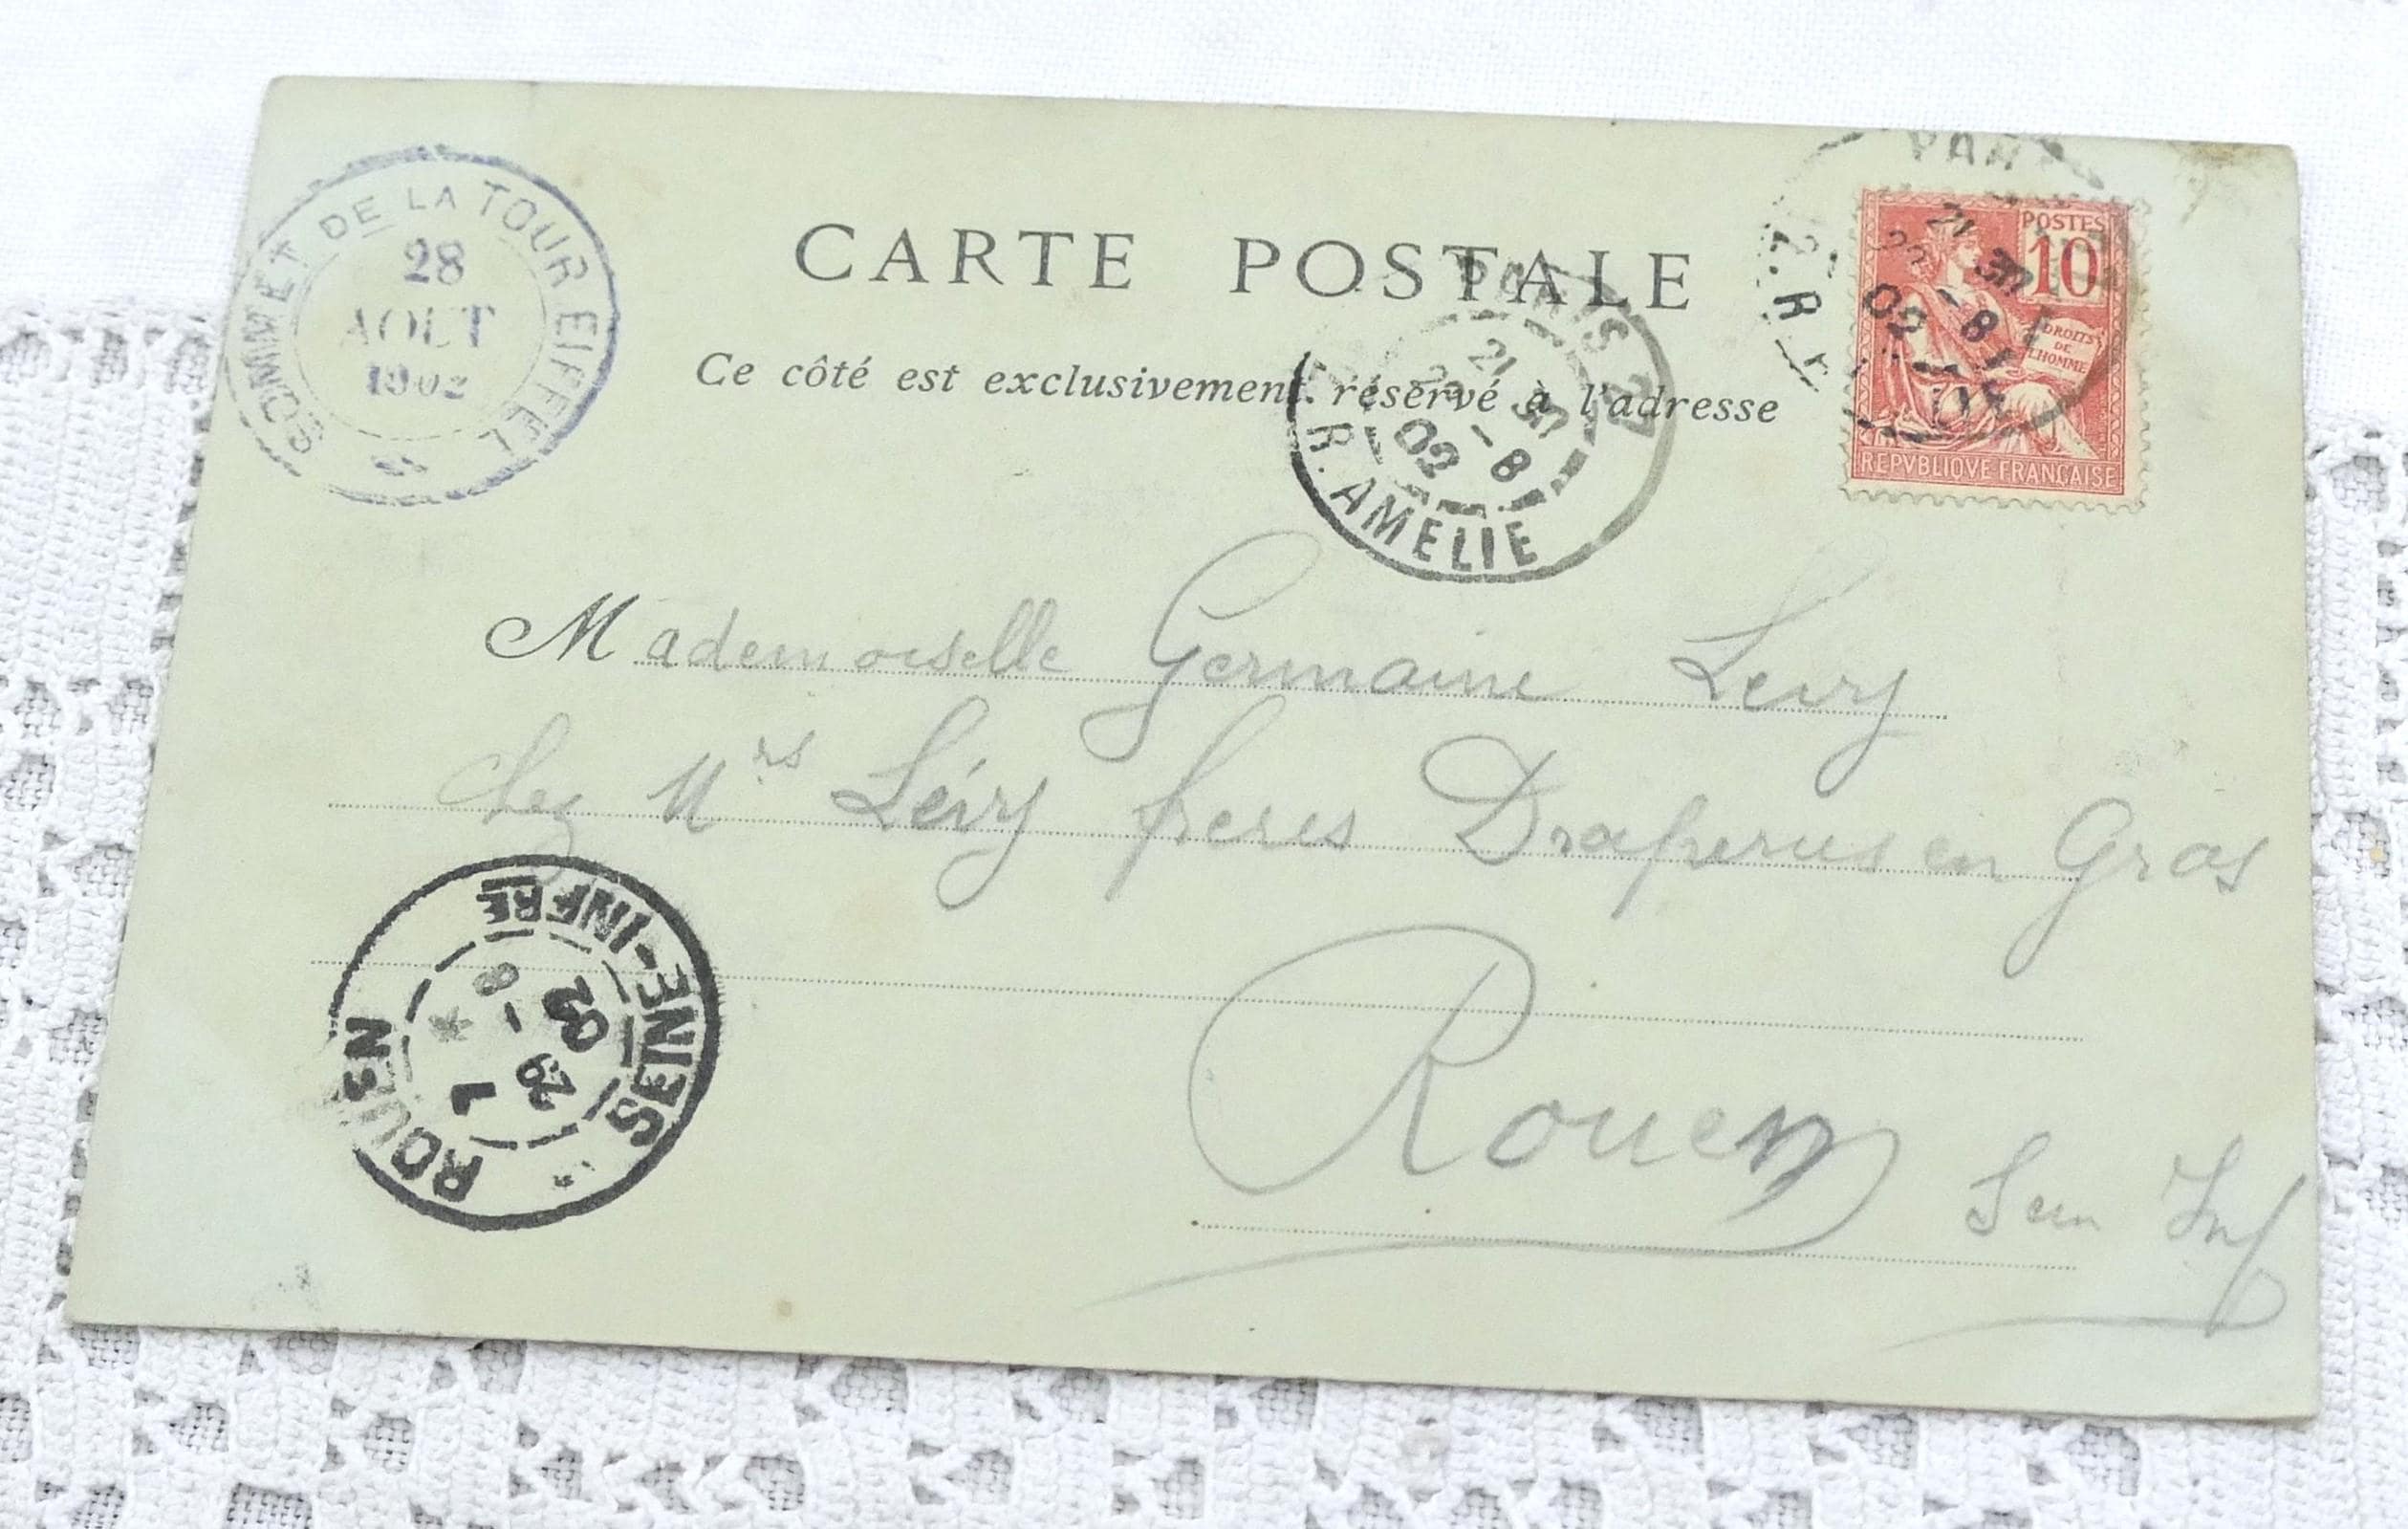 SOMMET DE LA TOUR EIFFEL
28
AOUT
1902
CARTE POSTALE
Ce côté est exclusivement réservé à l'adresse
PARIS 27
21 30
-8
02
R. AMELIE
PAR
21 30
-8
02
POSTES
10
DROITS
DE
L'HOMME
REPVBLIQVE FRANÇAISE
Mademoiselle Germaine Levy
chez Mrs Lévy freres Draperies en Gros
Rouen
Sein Inf
ROUEN
SEINE-INFRE
8
02